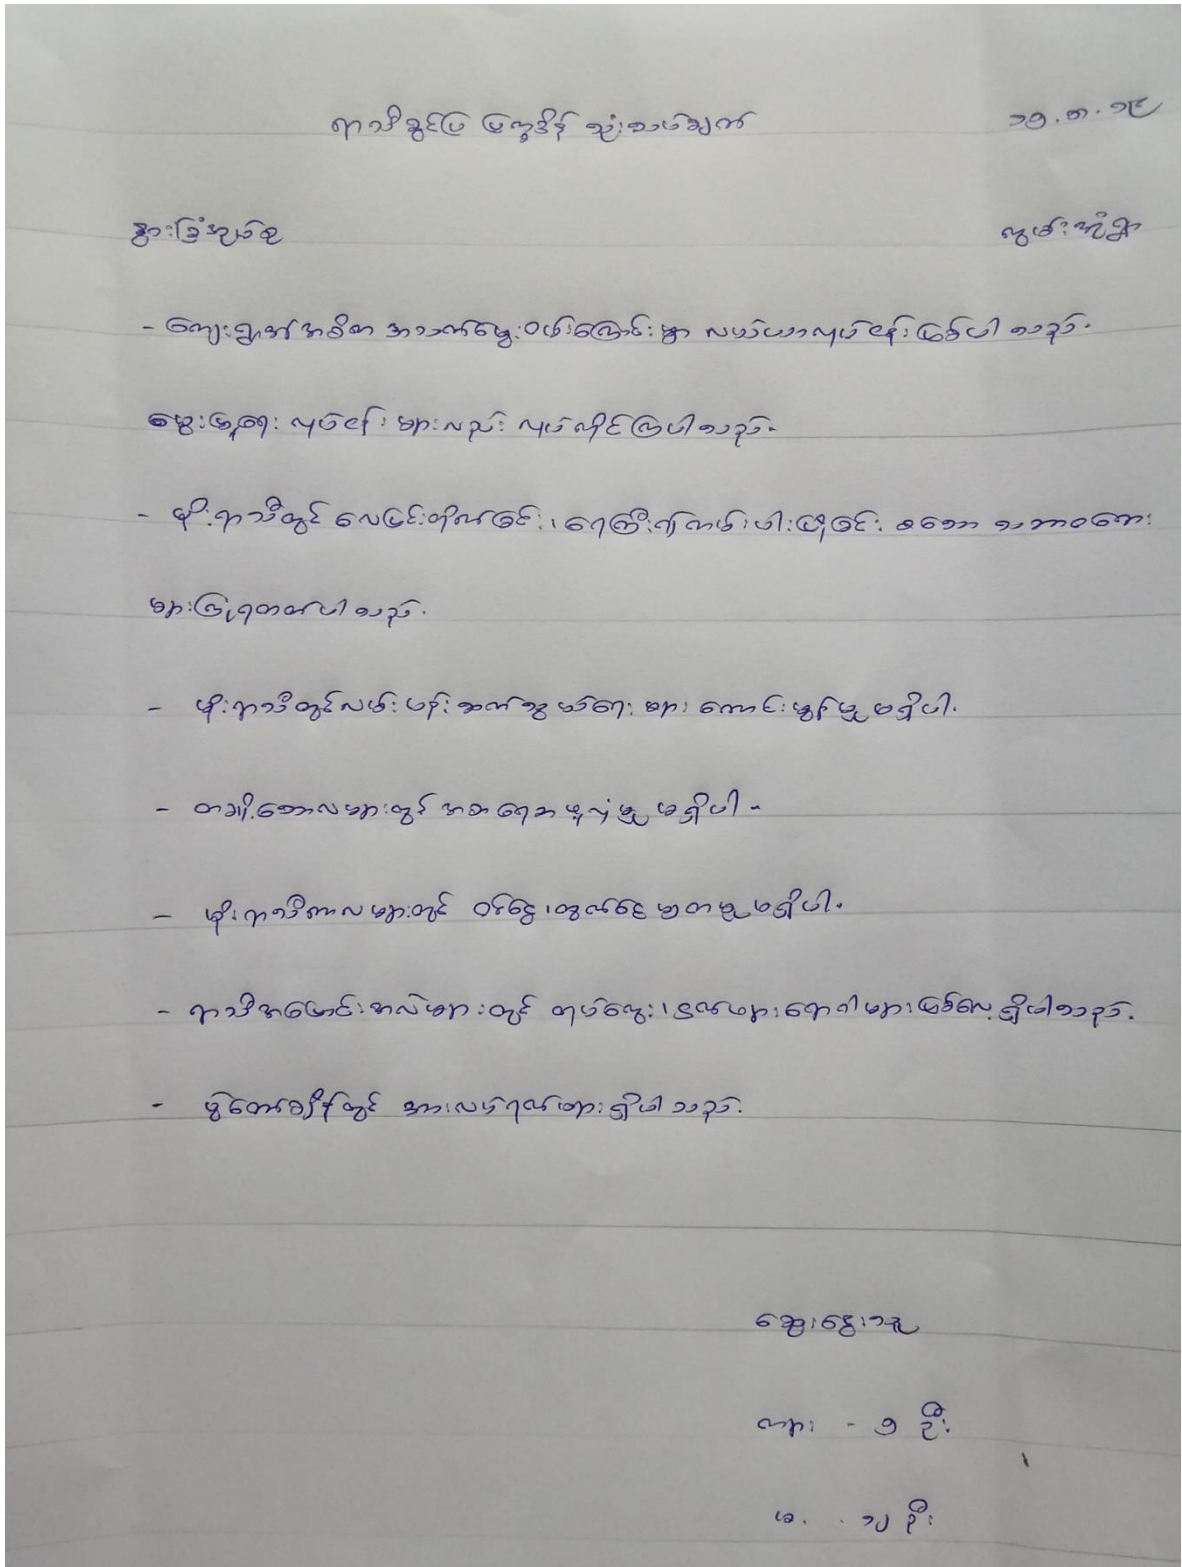 ရာသီခွင်ပြ ပြက္ခဒိန် သုံးသပ်ချက် ၁၅.၈.၁၉
နွားခြံအုပ်စု ကွမ်းအုံရွာ
- ကျေးရွာ၏အဓိက အသက်မွေးဝမ်းကြောင်းမှာ လယ်ယာလုပ်ငန်းဖြစ်ပါသည်.
မွေးမြူရေး လုပ်ငန်းများလည်း လုပ်ကိုင်ကြပါသည်.
- မိုးရာသီတွင် လေပြင်းတိုက်ခြင်း၊ ရေကြီး၍ကမ်းပါးပြိုခြင်း စသော သဘာဝဘေး
များကြုံရတတ်ပါသည်.
- မိုးရာသီတွင်လမ်းပန်းဆက်သွယ်ရေးများ ကောင်းမွန်မှု မရှိပါ.
- တချို့သောလများတွင် အစာရေစာ ဖူလုံမှု မရှိပါ -
- မိုးရာသီကာလများတွင် ဝင်ငွေ၊ထွက်ငွေ မျှတမှုမရှိပါ.
- ရာသီအပြောင်းအလဲများတွင် တုပ်ကွေး၊ ငှက်ဖျားရောဂါများဖြစ်လေ့ရှိပါသည်.
- ပွဲတော်ချိန်တွင် အားလပ်ရက်များရှိပါသည်.
ဆွေးနွေးသူ
ကျား - ၅ ဦး
မ - ၁၂ ဦး